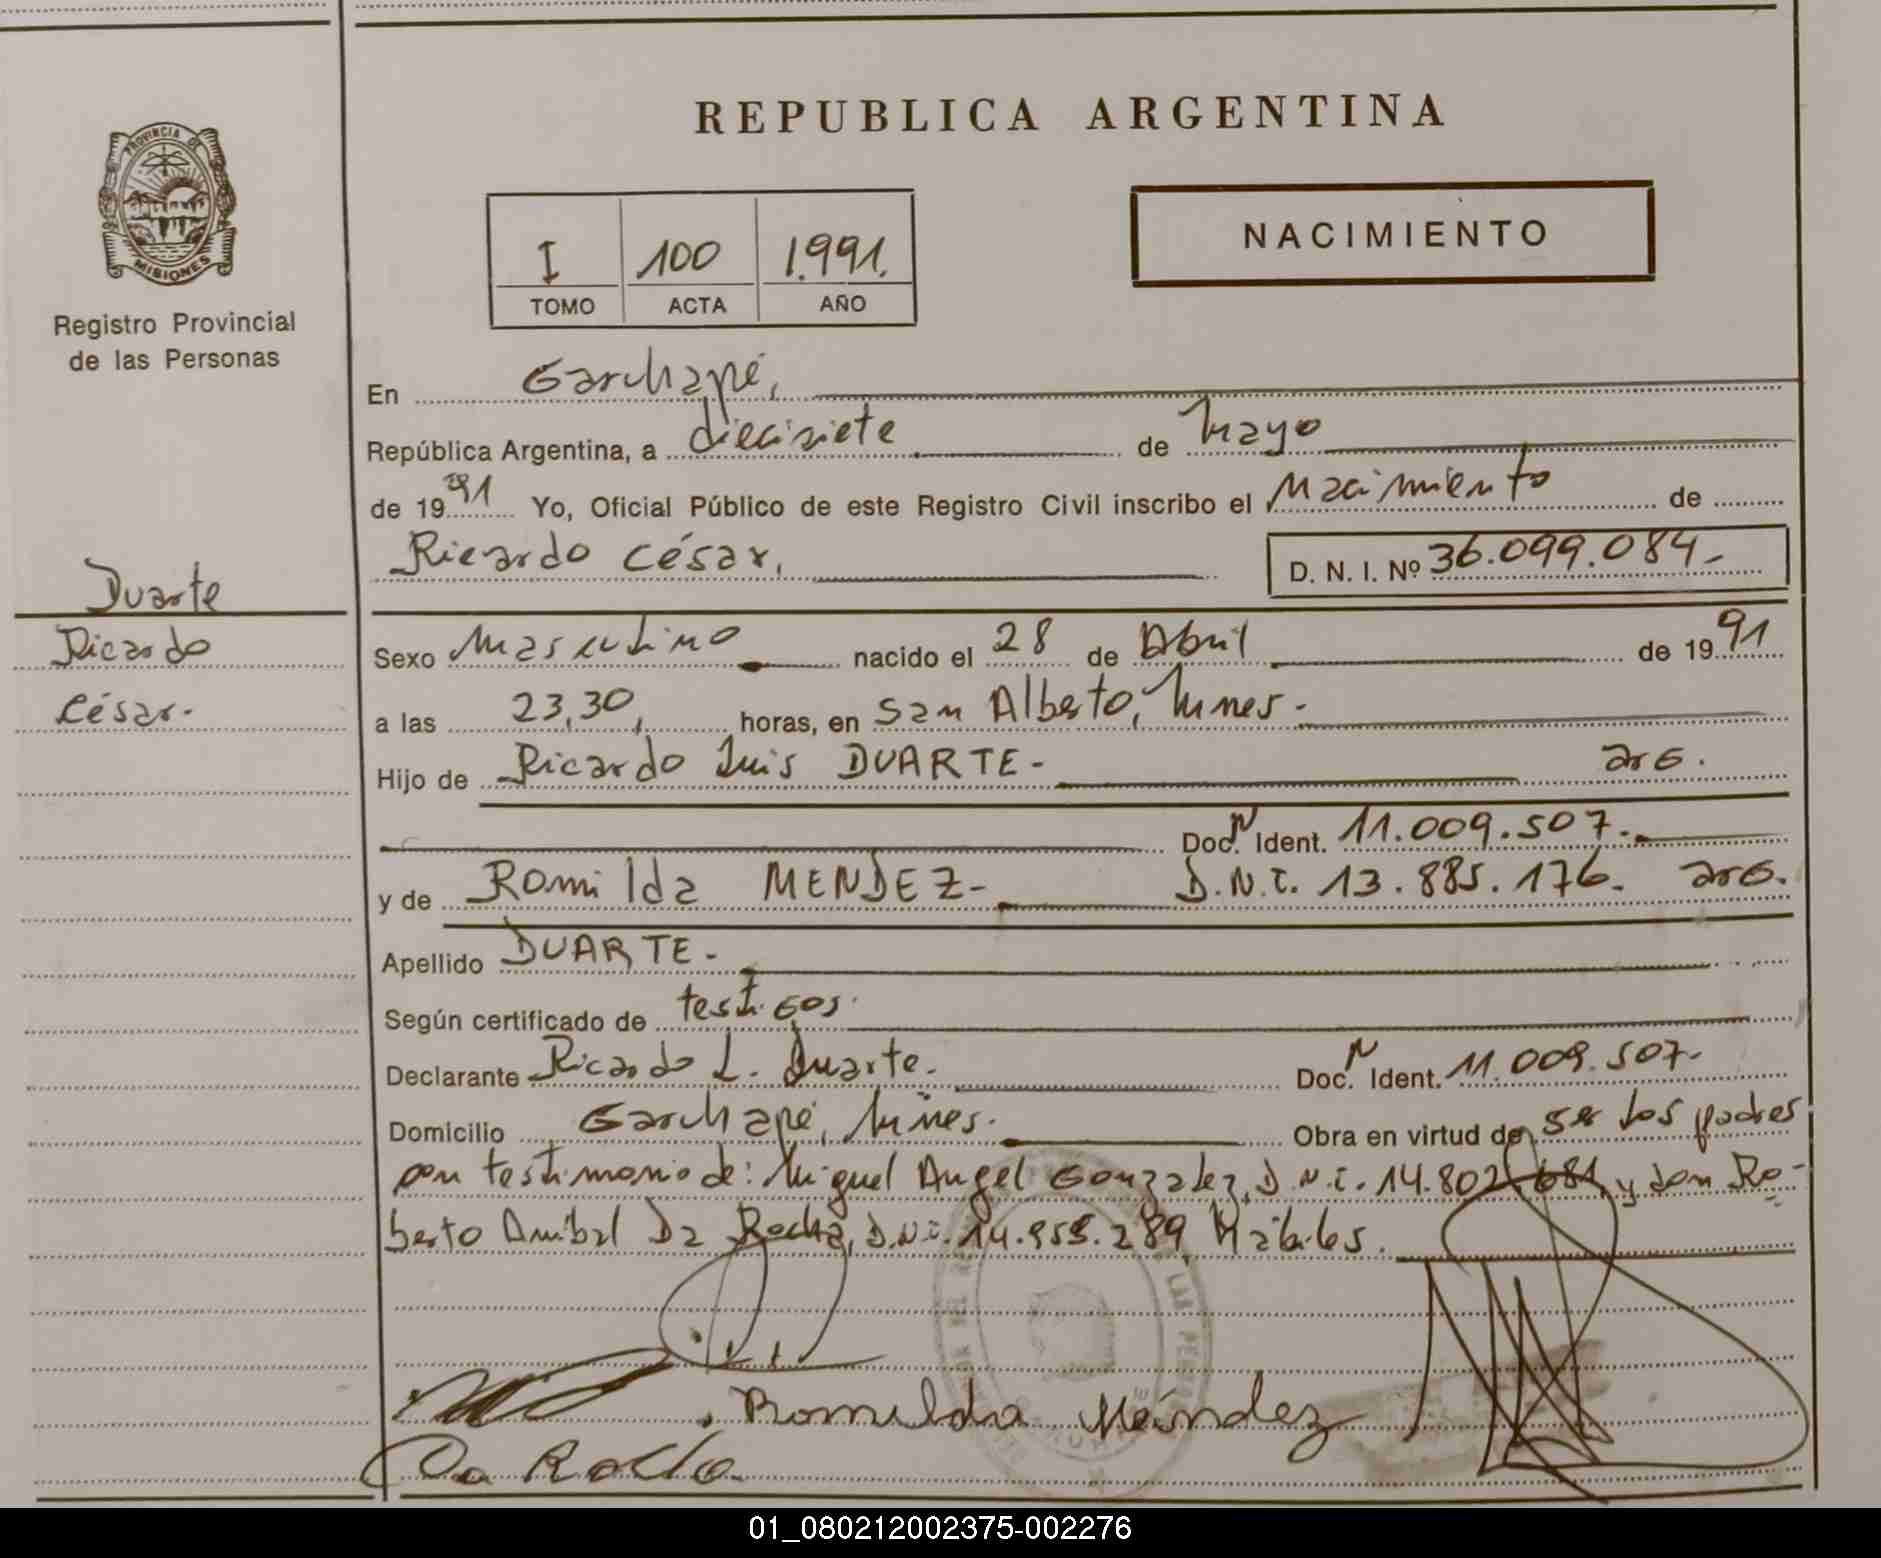 REPUBLICA ARGENTINA
PROVINCIA DE
MISIONES
Registro Provincial
de las Personas
NACIMIENTO
I 100 1.991.
TOMO ACTA AÑO
En Garuhapé,
República Argentina, a diecisiete de Mayo
de 1991 Yo, Oficial Público de este Registro Civil inscribo el Nacimiento de
Ricardo César,
D. N. I. Nº 36.099.084-
Duarte
Ricardo
César.-
Sexo Masculino nacido el 28 de Abril de 1991
a las 23,30, horas, en San Alberto, Mnes.-
Hijo de Ricardo Luis DUARTE- arg.
Doc. N Ident. 11.009.507.
y de Romilda MENDEZ- D.N.I. 13.885.176. arg.
Apellido DUARTE-
Según certificado de testigos.
Declarante Ricardo L. Duarte. Doc. N Ident. 11.009.507-
Domicilio Garuhapé, Mnes. Obra en virtud de ser los padres
con testimonio de: Miguel Angel Gonzalez, D.N.I. 14.802.681, y don Ro-
berto Anibal Da Rocha, D.N.I. 289 Hábiles.
Romilda Méndez
Da Rocha
01_080212002375-002276